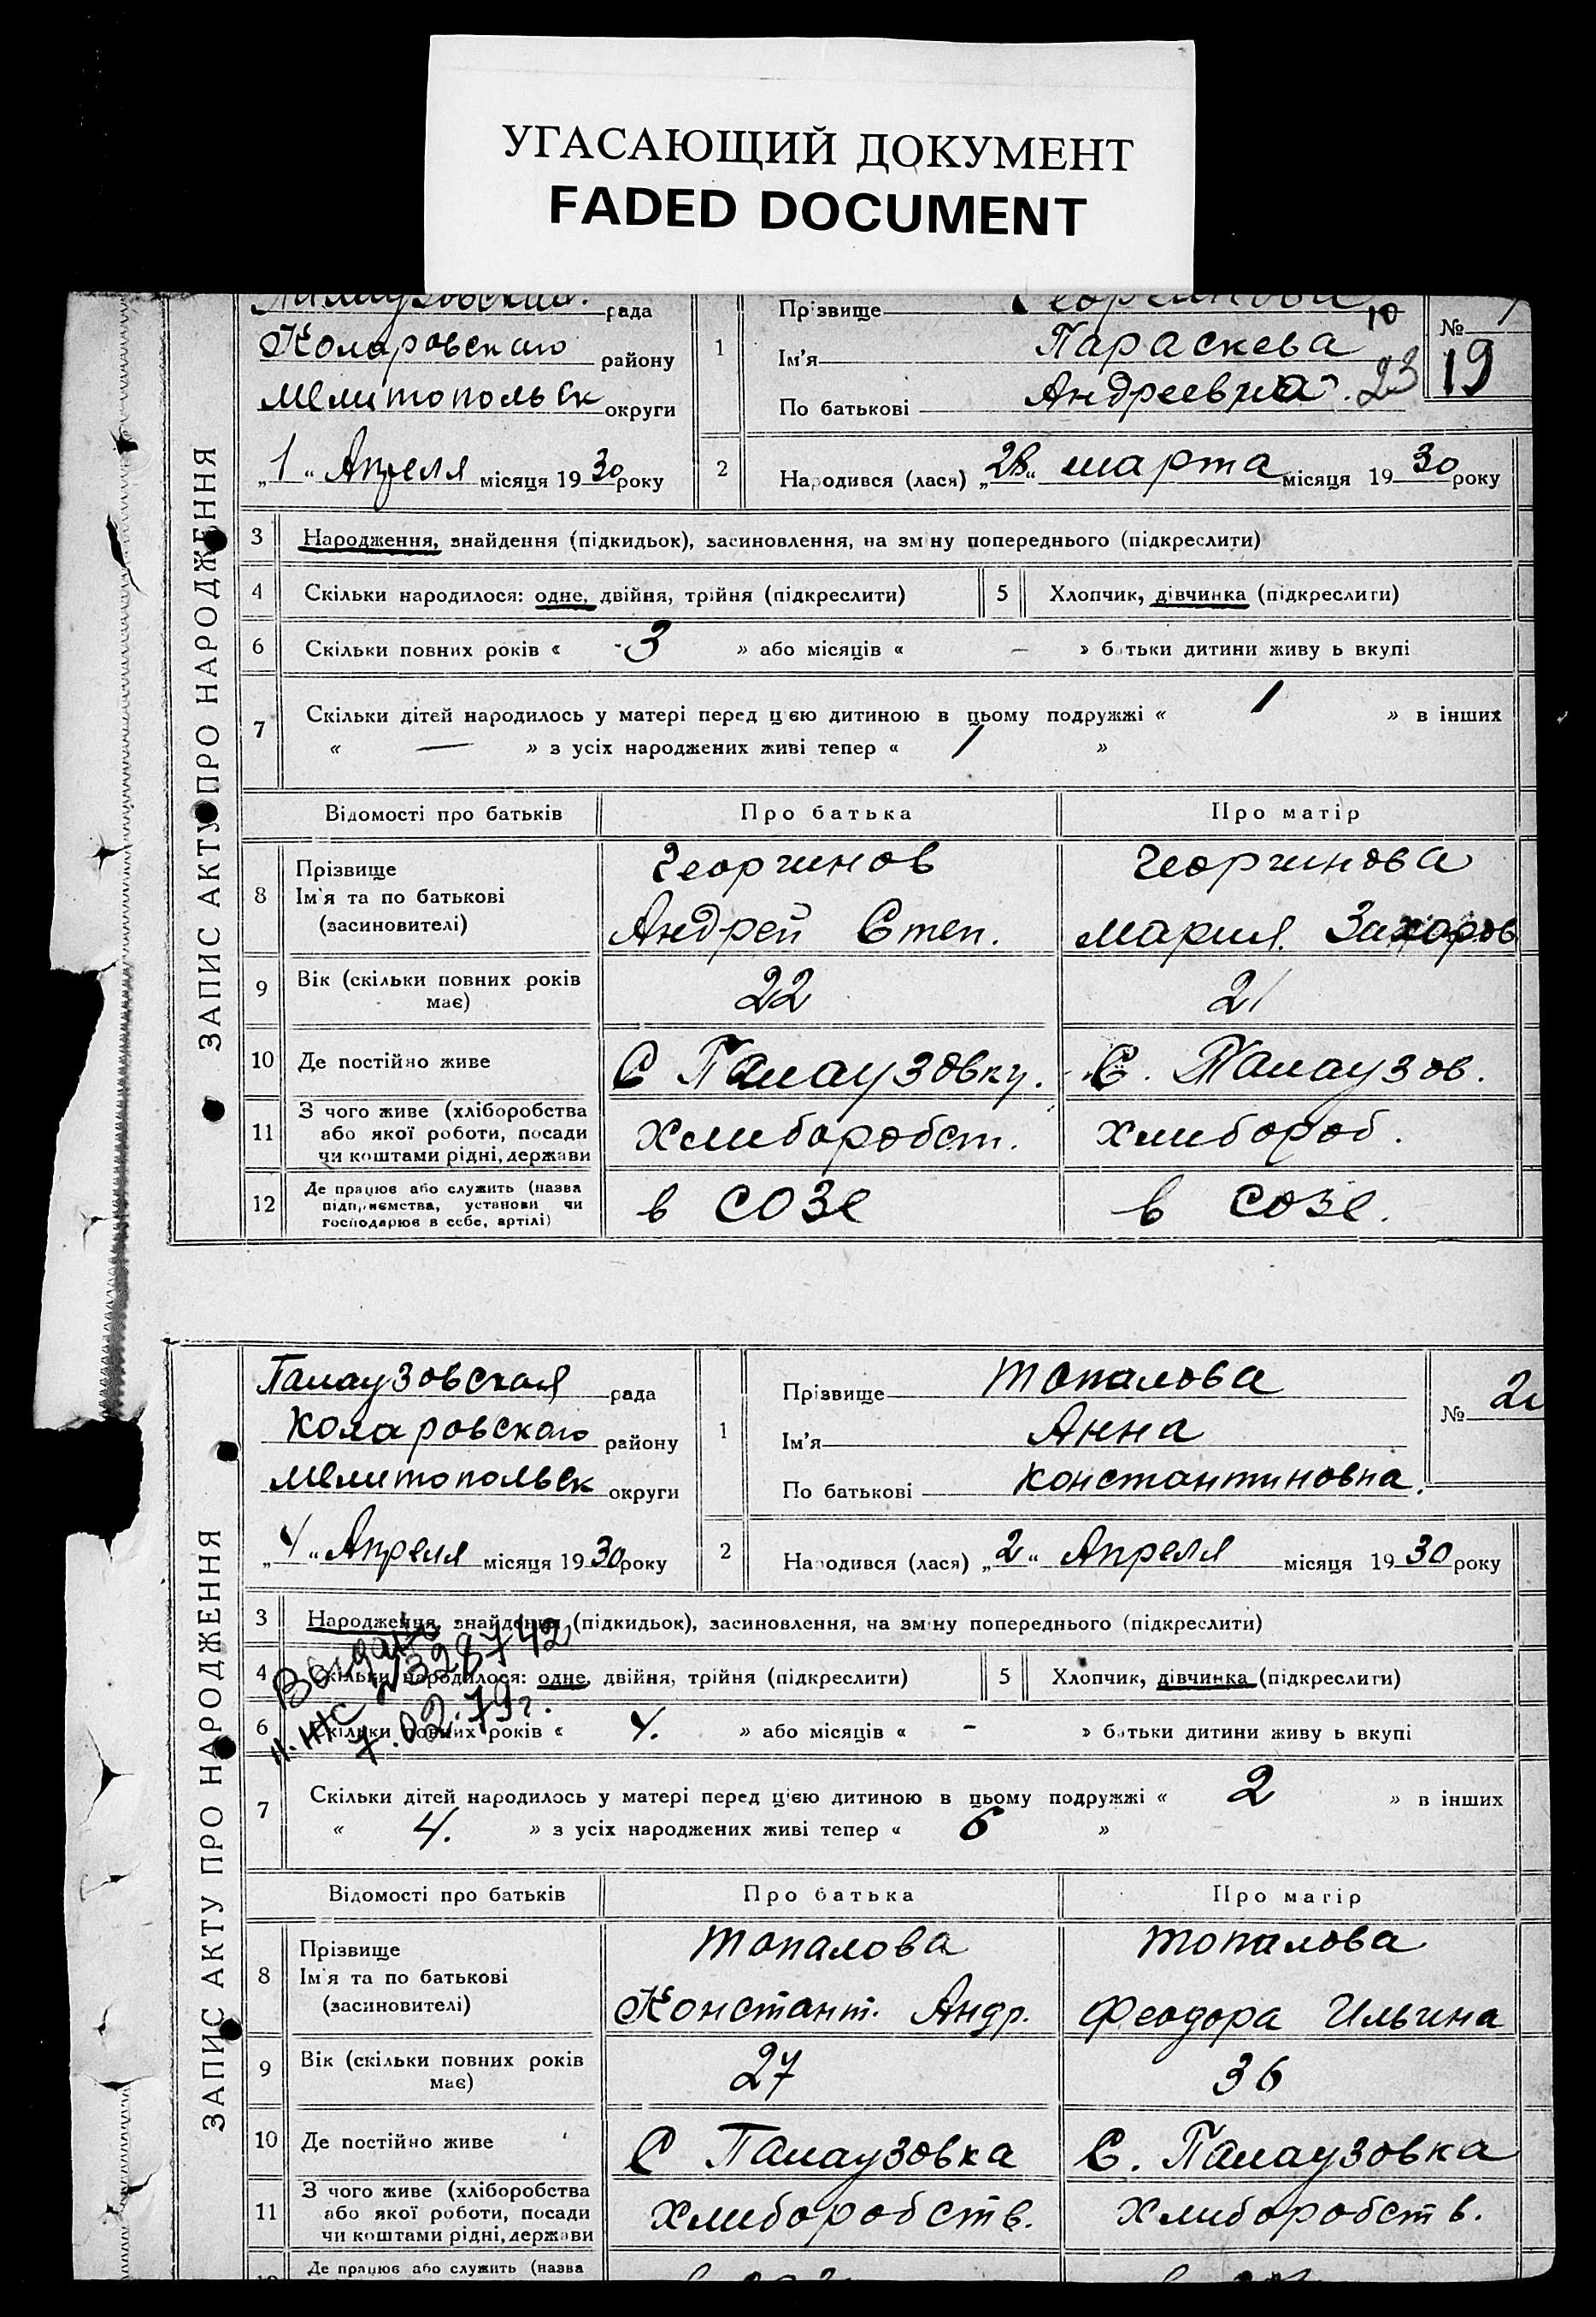 УГАСАЮЩИЙ ДОКУМЕНТ
FADED DOCUMENT
ЗАПИС АКТУ ПРО НАРОДЖЕННЯ
рада
Коларовского району
Мелитопольск округи
„1“ Апреля місяця 1930 року
1
Прізвище
Ім'я Параскева
По батькові Андреевна
10
23
№
19
2
Народився (лася) „28“ марта місяця 1930 року
3 Народження, знайдення (підкидьок), засиновлення, на зміну попереднього (підкреслити)
4 Скільки народилося: одне, двійня, трійня (підкреслити)
5 Хлопчик, дівчинка (підкреслити)
6 Скільки повних років « 3 » або місяців « – » батьки дитини живуть вкупі
7 Скільки дітей народилось у матері перед цією дитиною в цьому подружжі « 1 » в інших
« — » з усіх народжених живі тепер « 1 »
Відомості про батьків Про батька Про матір
8 Прізвище
Ім'я та по батькові
(засиновителі)
Георгинов
Андрей Степ.
Георгинова
Мария Захоров
9 Вік (скільки повних років
має)
22 21
10 Де постійно живе С Палаузовку. С. Палаузов.
11 З чого живе (хліборобства
або якої роботи, посади
чи коштами рідні, держави
Хлиборобст. Хлибороб.
12 Де працює або служить (назва
підприємства, установи чи
господарює в себе, артілі)
в СОЗе в созе.
ЗАПИС АКТУ ПРО НАРОДЖЕННЯ
Палаузовская рада
Коларовского району
Мелитопольск округи
„4“ Апреля місяця 1930 року
1
Прізвище Топалова
Ім'я Анна
По батькові Константиновна.
№
2
Народився (лася) „2“ Апреля місяця 1930 року
3 Народження, знайдення (підкидьок), засиновлення, на зміну попереднього (підкреслити)
4 Скільки народилося: одне, двійня, трійня (підкреслити)
5 Хлопчик, дівчинка (підкреслити)
№328742
7.02.79г.
6 Скільки повних років « 4. » або місяців « - » батьки дитини живуть вкупі
7 Скільки дітей народилось у матері перед цією дитиною в цьому подружжі « 2 » в інших
« 4. » з усіх народжених живі тепер « 6 »
Відомості про батьків Про батька Про матір
8 Прізвище
Ім'я та по батькові
(засиновителі)
Топалова
Констант. Андр.
Топалова
Феодора Ильина
9 Вік (скільки повних років
має)
27 36
10 Де постійно живе С Палаузовка С. Палаузовка
11 З чого живе (хліборобства
або якої роботи, посади
чи коштами рідні, держави
Хлиборобств. Хлиборобств.
Де працює або служить (назва